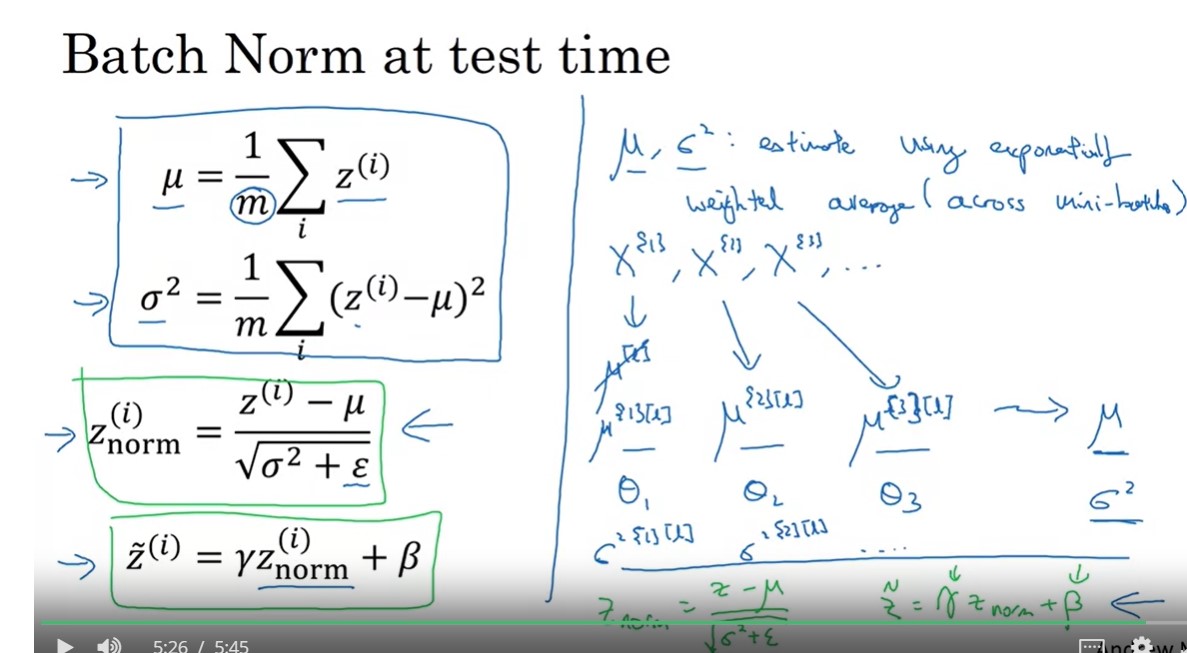 Batch Norm at test time
μ = 1/m ∑_i z^(i)
σ² = 1/m ∑_i (z^(i)−μ)²
z_norm^(i) = (z^(i) − μ) / √(σ² + ε)
z̃^(i) = γz_norm^(i) + β
μ, σ² : estimate using exponentially
weighted average (across mini-batches)
X^{1}, X^{2}, X^{3}, ...
μ^[l]
μ^{1}[l] μ^{2}[l] μ^{3}[l] → μ
θ₁ θ₂ θ₃ σ²
σ²^{1}[l] σ²^{2}[l] ....
z_norm = (z − μ) / √(σ²+ε) z̃ = γ z_norm + β
5:26 / 5:45